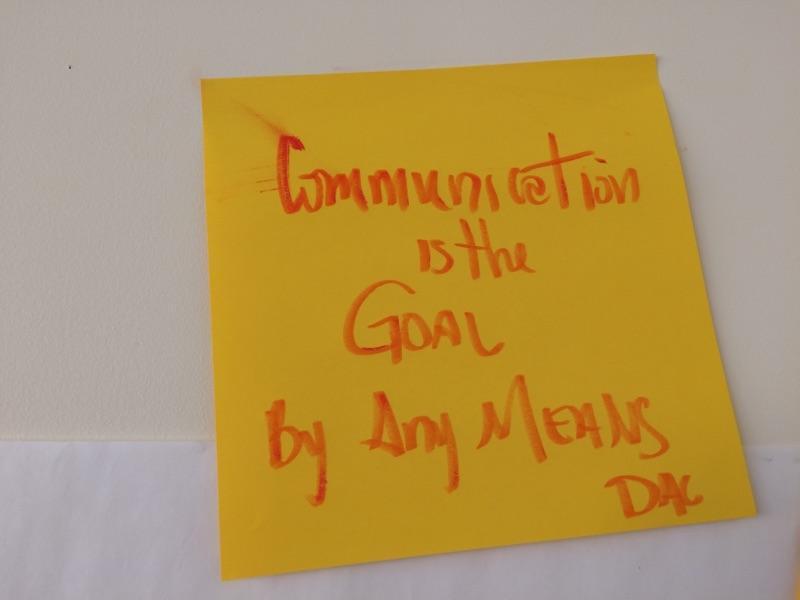 Communic@tion
is the
GOAL
by Any MEANS
DAC